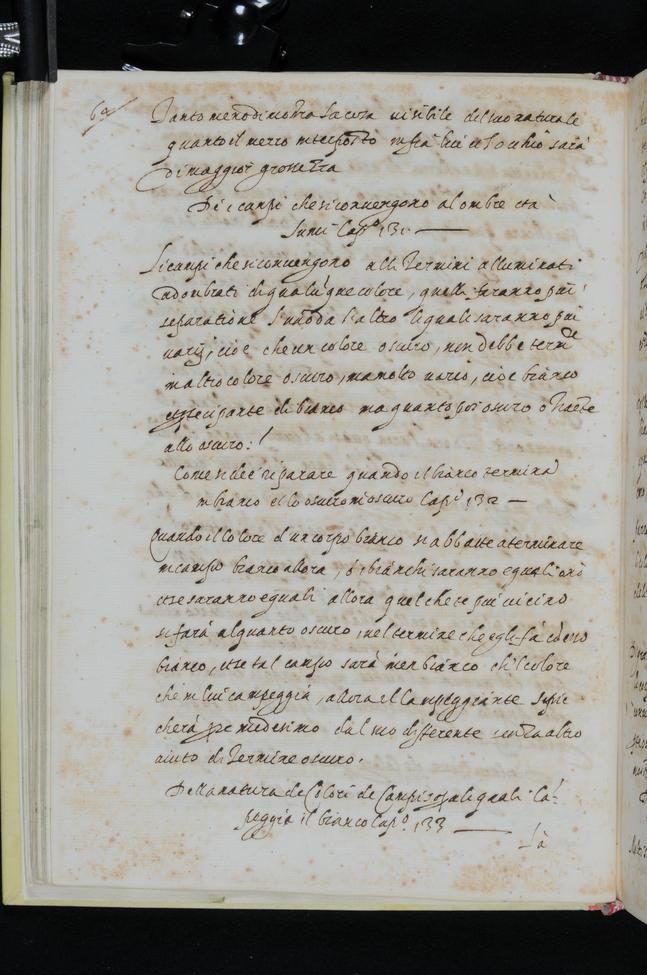 69
Tanto meno dimostra la cosa visibile del suo naturale
quanto il mezzo interposto infra lei et l'occhio sarà
di maggior grossezza
De i campi che si convengono al ombre et à
lumi Cap.º 131
Li campi che si convengono alli Termini alluminati
adombrati di qualunque colore, quelli faranno piu
separatione l'uno da l'altro li quali saranno piu
varij, cioe che un colore oscuro, non debbe term.re
in altro colore oscuro, ma molto vario, cioe bianco
et partecipante di bianco
allo oscuro.
Come si dee riparare quando il bianco termina
in bianco et lo oscuro in oscuro Cap.º 132
Quando il colore d'un corpo bianco s'abbatte a terminare
in campo bianco allora, ò i bianchi saranno eguali ò nò
et se saranno eguali allora quel che te piu vicino
si farà alquanto oscuro, nel termine che egli fà cō esso
bianco, et se tal campo sarà men bianco ch'l colore
che in lui campeggia, allora il campeggiante spic
cherà per medesimo dal suo differente senza altro
aiuto di Termine oscuro.
Della natura de Colori de Campi sopra li quali Cā
peggia il bianco Cap.º 133
Là